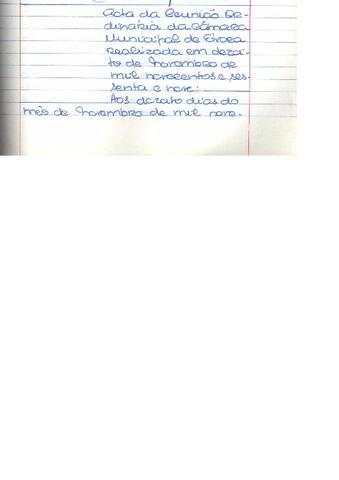 Acta da Reunião Or-
dinária da Câmara
Municipal de Évora
realizada em dezoi-
to de Novembro de
mil novecentos e ses-
senta e nove:
Aos dezoito dias do
mês de Novembro de mil nove-